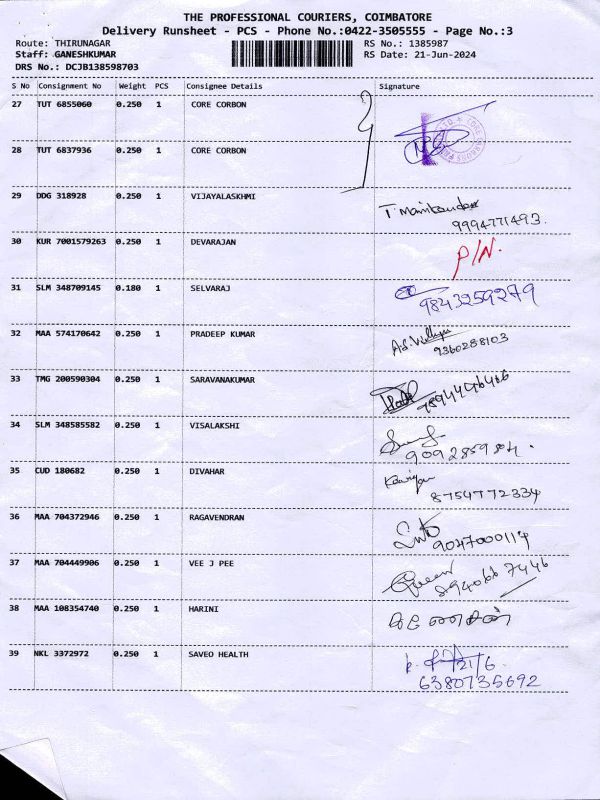 THE PROFESSIONAL COURIERS, COIMBATORE
Delivery Runsheet - PCS - Phone No.:0422-3505555 - Page No.:3
Route: THIRUNAGAR
RS No.: 1385987
Staff: GANESHKUMAR
RS Date: 21-Jun-2024
DRS No.: DCJB138598703
S No Consignment No Weight PCS Consignee Details Signature
27 TUT 6855060 0.250 1 CORE CORBON
28 TUT 6837936 0.250 1 CORE CORBON
29 DDG 318928 0.250 1 VIJAYALASKHMI
9994771493.
30 KUR 7001579263 0.250 1 DEVARAJAN P/N.
31 SLM 348709145 0.180 1 SELVARAJ
9843259279
32 MAA 574170642 0.250 1 PRADEEP KUMAR
9360288103
33 TMG 200590304 0.250 1 SARAVANAKUMAR
34 SLM 348585582 0.250 1 VISALAKSHI
35 CUD 180682 0.250 1 DIVAHAR
8754772334
36 MAA 704372946 0.250 1 RAGAVENDRAN
37 MAA 704449906 0.250 1 VEE J PEE
38 MAA 108354740 0.250 1 HARINI
39 NKL 3372972 0.250 1 SAVEO HEALTH
21/6.
6380735692